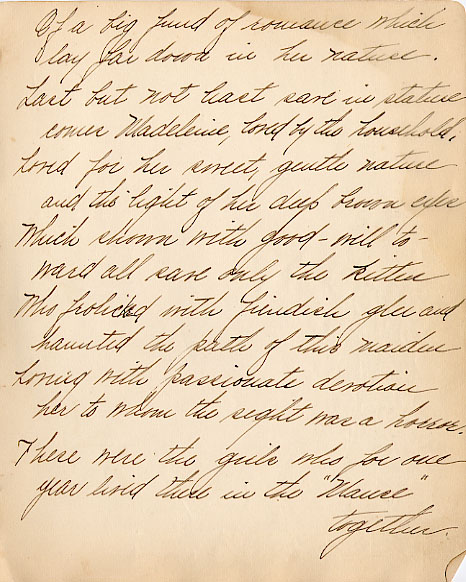 Of a big fund of romance which
lay far down in her nature.
Last but not least save in stature
comes Madeleine, loved by the household.
Loved for her sweet, gentle nature
and the light of her deep brown eyes
Which shown with good-will to-
ward all save only the kitten
Who frolicked with fiendish glee and
haunted the path of this maiden
Loving with passionate devotion
her to whom the sight was a horror.
These were the girls who for one
year lived thus in the "Manse"
together.